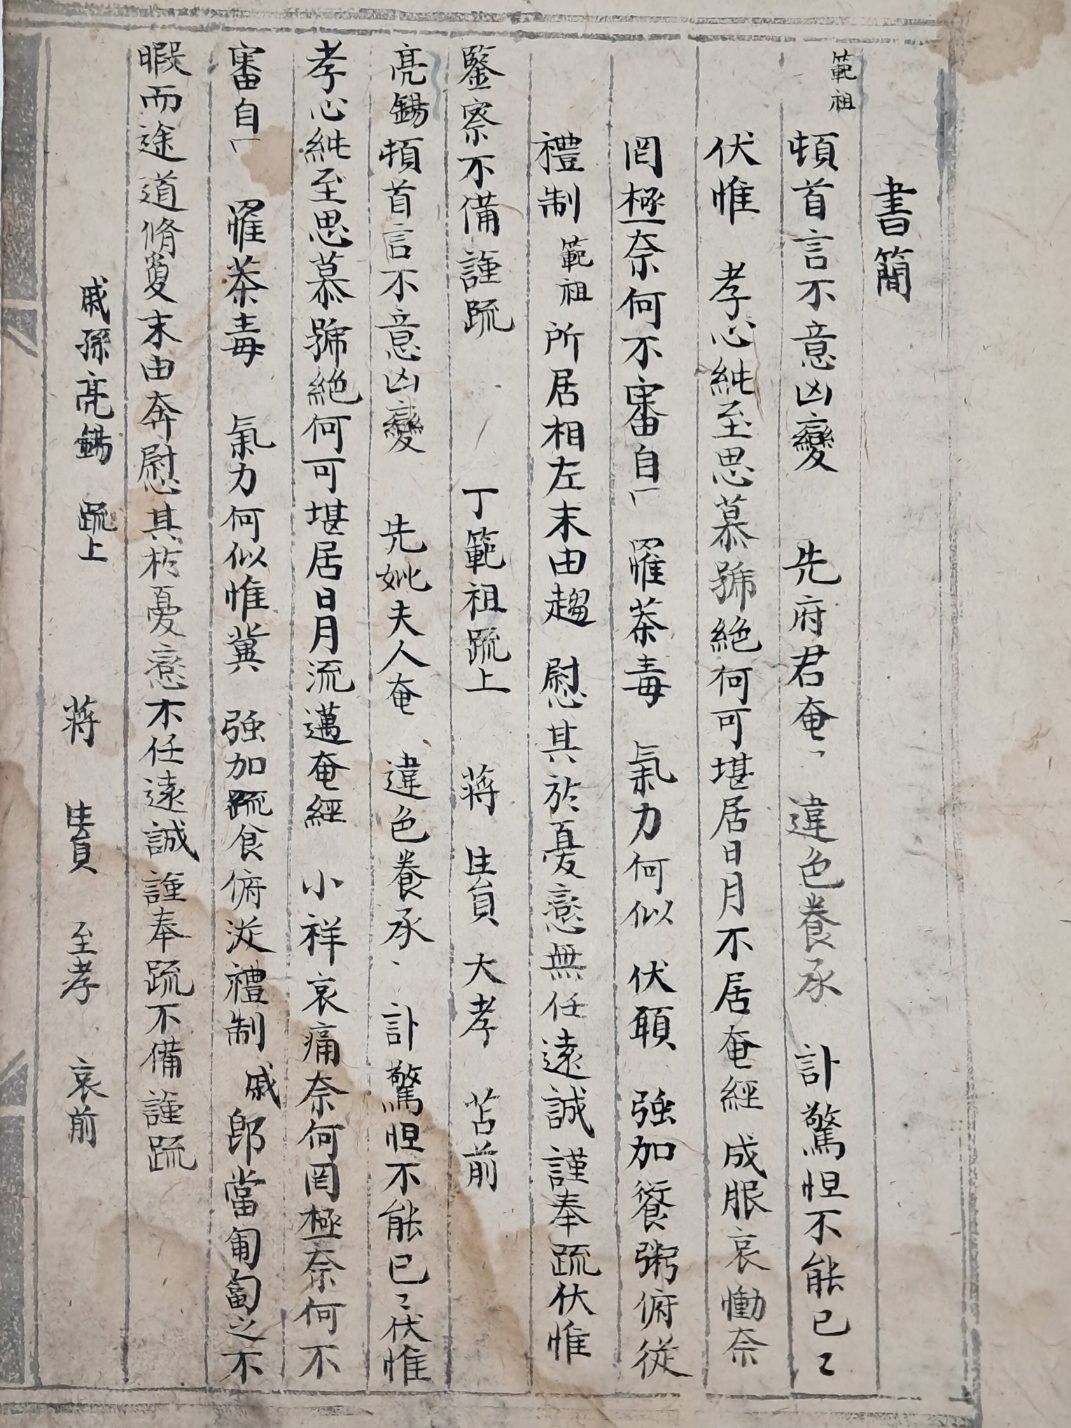 書簡
範祖頓首言不意凶變 先府君奄〻 違色養承 訃驚怛不能已〻
伏惟 孝心純至思慕號絶何可堪居日月不居奄經 成服哀慟奈
何罔極奈何不審自 罹荼毒 氣力何似 伏願 強加餐粥俯從
禮制範祖所居相左末由趨 慰其於憂戀無任遠誠謹奉疏伏惟
鑒察不備謹疏 丁範祖疏上 蔣 生員 大孝 苫前
亮錫頓首言不意凶變 先妣夫人奄 違色養承〻 訃驚怛不能已〻伏惟
孝心純至思慕號絶何可堪居日月流邁奄經 小祥哀痛奈何罔極奈何不
審自 罹荼毒 氣力何似惟冀 強加疏食俯從禮制戚郎當匍匐之不
暇而途道脩夐末由奔慰其於憂戀不任遠誠謹奉疏不備謹疏
戚孫亮錫 疏上 蔣 生員 至孝 哀前